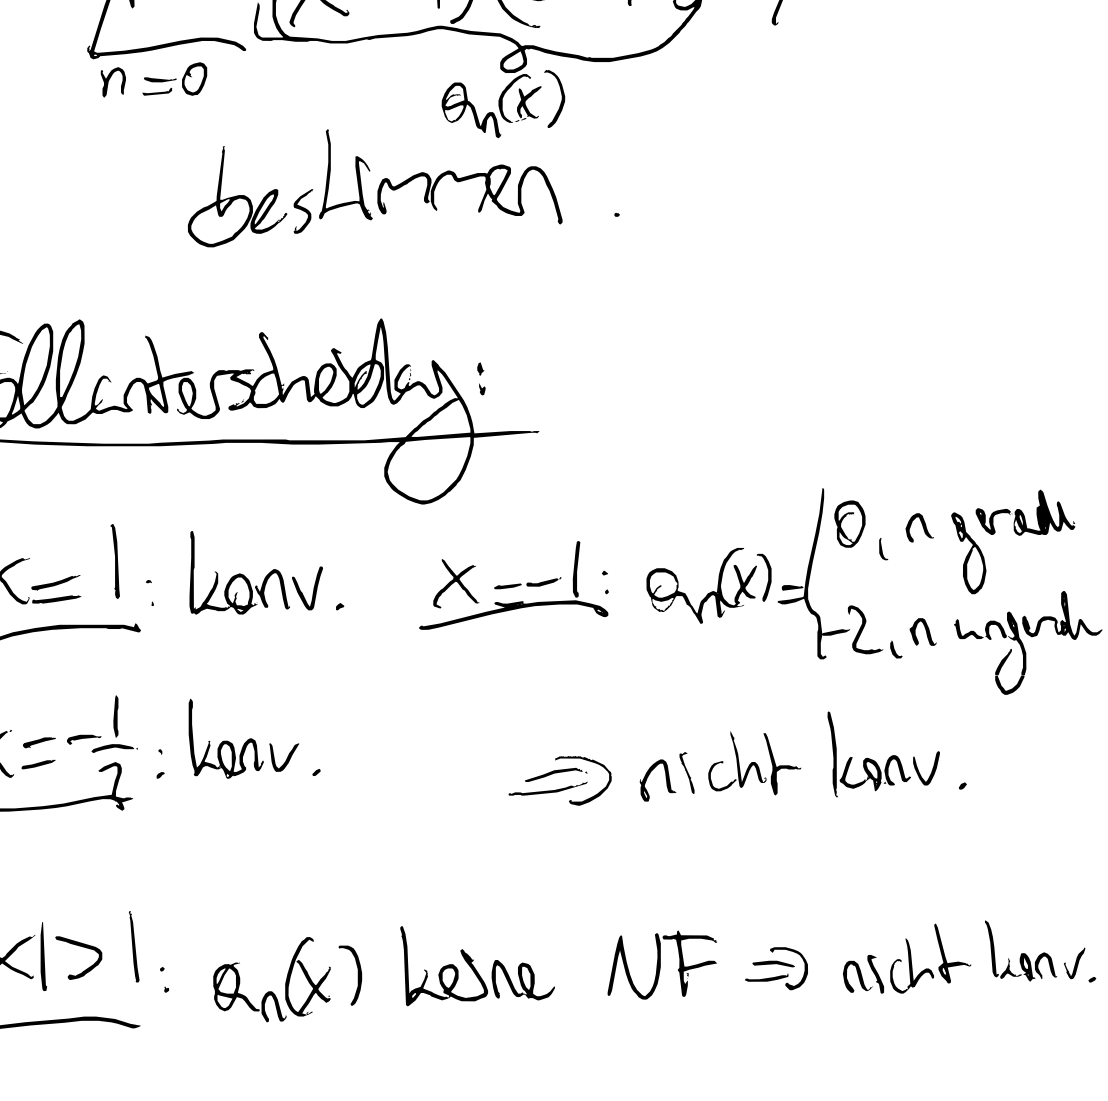 n=0
aₙ(x)
bestimmen.
Fallunterscheidung:
x=1: konv. x=-1: aₙ(x)= { 0, n gerade
-2, n ungerade
x=-1/2: konv. ⇒ nicht konv.
|x|>1: aₙ(x) keine NF ⇒ nicht konv.